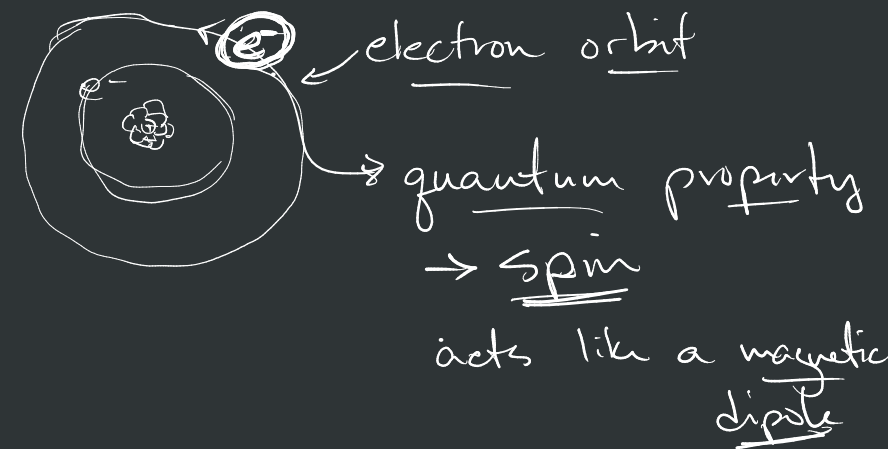 e⁻ electron orbit
-
quantum property
→ spin
acts like a magnetic
dipole